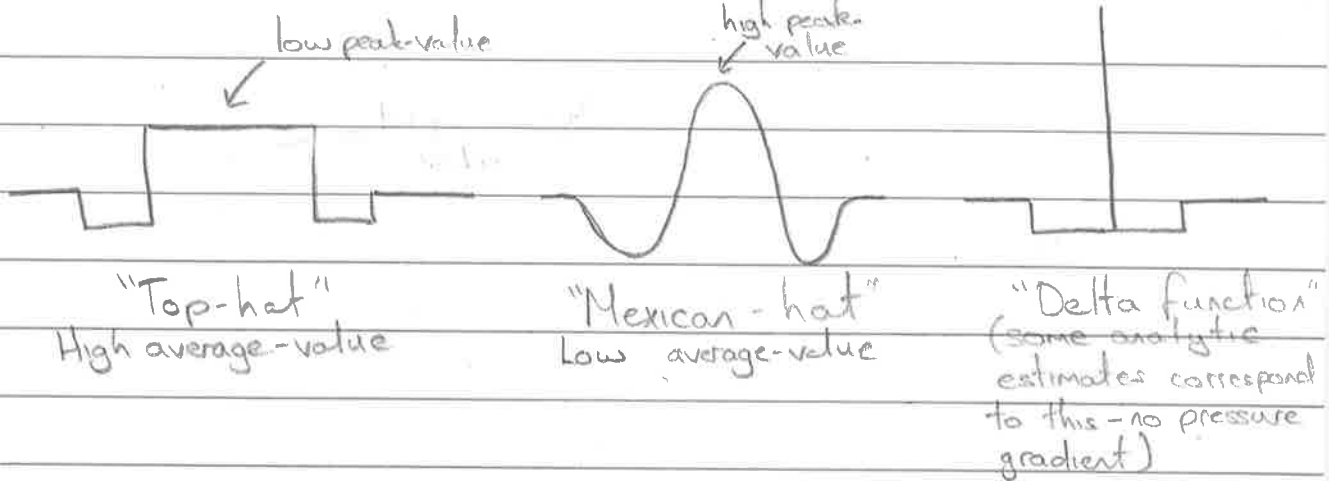 low peak-value
high peak-
value
"Top-hat"
High average-value
"Mexican-hat"
Low average-value
"Delta function"
(some analytic
estimates correspond
to this - no pressure
gradient)